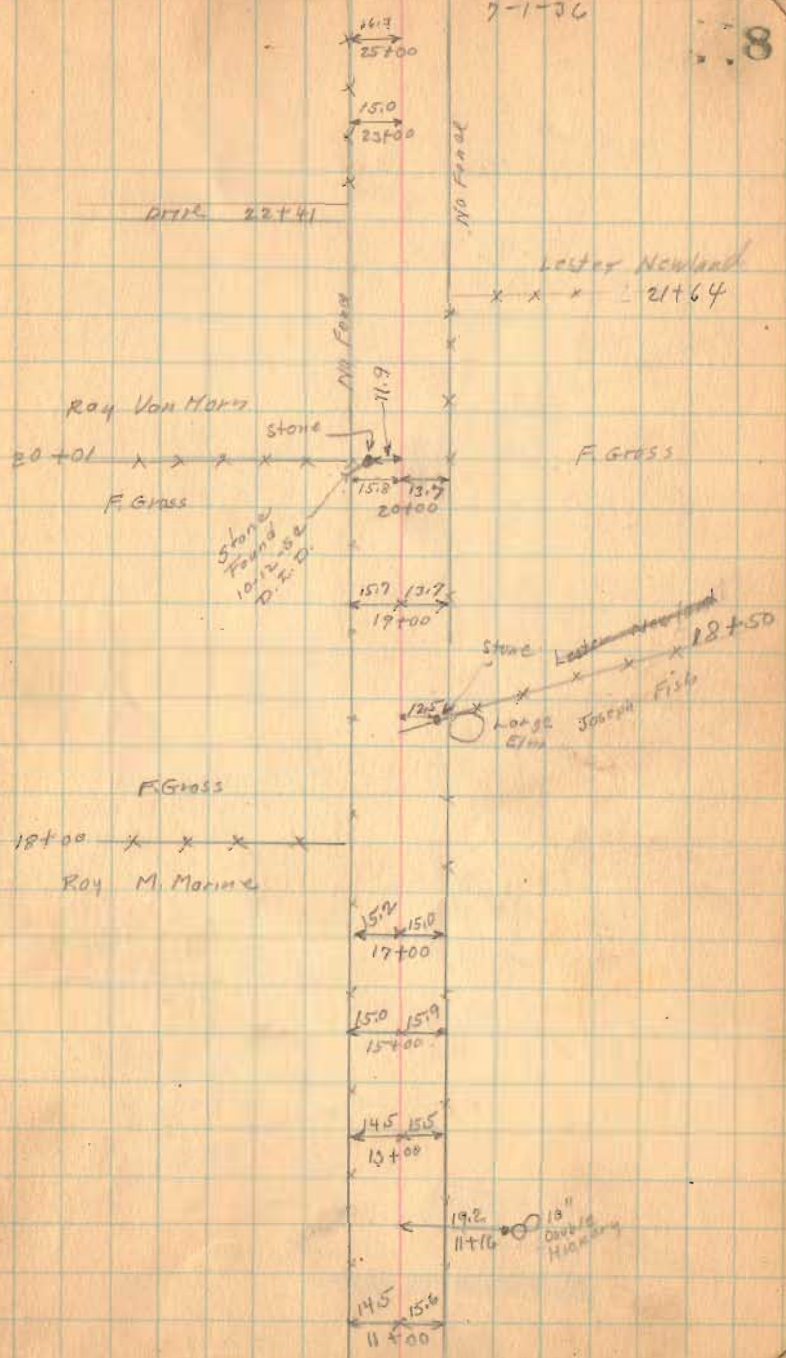 7-1-36
8
16.7
25+00
15.0
23+00
No Fence
Drive 22+41
Lester Newland
21+64
No Fence
11.9
Ray Van Horn
stone
20+01
F. Gross
F. Gross
15.8 13.7
20+00
Stone
Found
10-12-
15.7 13.7
19+00
Stone
Lester Newland
18+50
12.5
Large
Elm
Joseph Fish
F. Gross
18+00
Roy M. Marine
15.2 15.0
17+00
15.0 15.9
15+00
14.5 15.5
13+00
19.2
11+16
18"
Double
Hickory
14.5 15.6
11+00